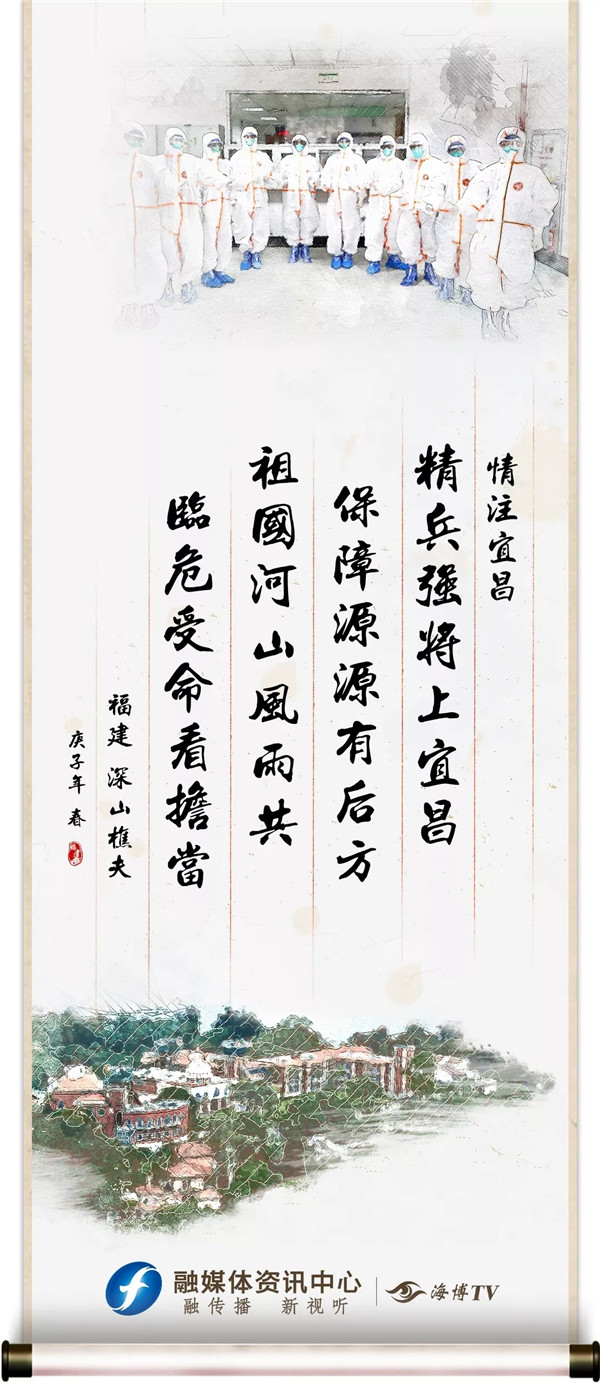 情注宜昌
精兵强将上宜昌
保障源源有后方
祖國河山風雨共
臨危受命看擔當
福建 深山樵夫
庚子年 春
融媒体资讯中心
融传播 新视听
海博TV